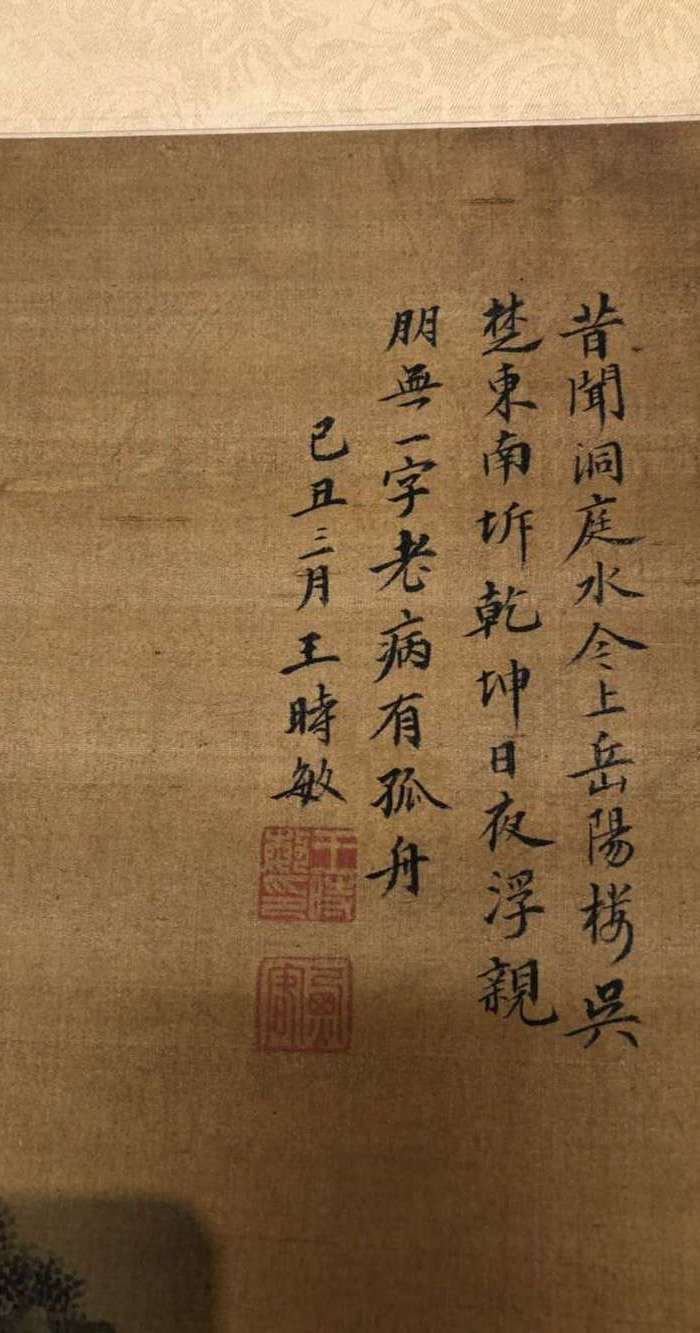 昔聞洞庭水今上岳陽楼吳
楚東南坼乾坤日夜浮親
朋無一字老病有孤舟
己丑三月王時敏